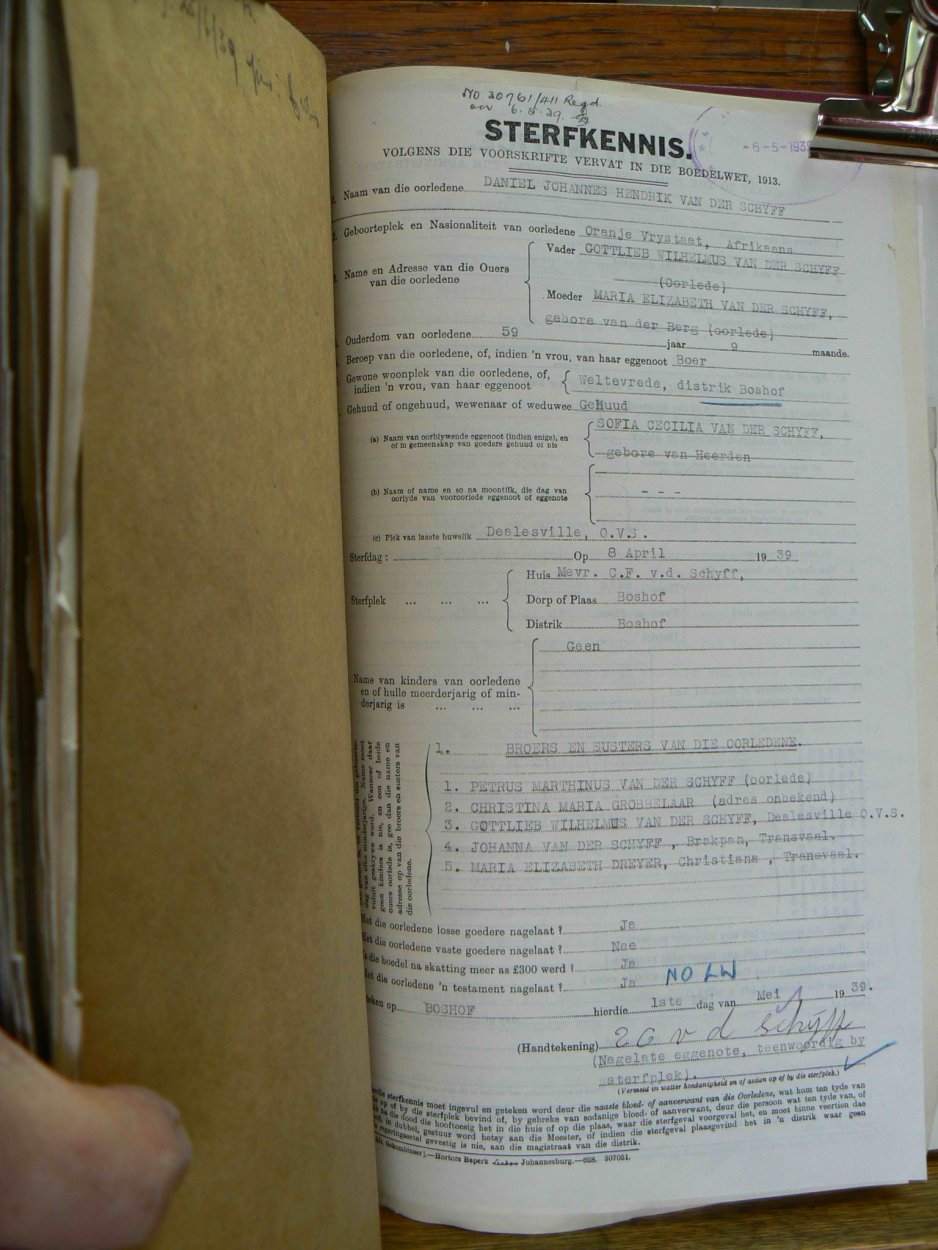 No 30761/411 Regd.
on 6.5.39.
STERFKENNIS.
-6-5-193
VOLGENS DIE VOORSKRIFTE VERVAT IN DIE BOEDELWET, 1913.
Naam van die oorledene DANIEL JOHANNES HENDRIK VAN DER SCHYFF
Geboorteplek en Nasionaliteit van oorledene Oranje Vrystaat, Afrikaans
Vader GOTTLIEB WILHELMUS VAN DER SCHYFF
Name en Adresse van die Ouers
van die oorledene
(Oorlede)
Moeder MARIA ELIZABETH VAN DER SCHYFF,
gebore van der Berg (oorlede)
Ouderdom van oorledene 59 jaar 9 maande.
Beroep van die oorledene, of, indien 'n vrou, van haar eggenoot Boer
Gewone woonplek van die oorledene, of,
indien 'n vrou, van haar eggenoot
Weltevrede, distrik Boshof
Gehuud of ongehuud, wewenaar of weduwee GeHuud
(a) Naam van oorblywende eggenoot (indien enige), en
of in gemeenskap van goedere gehuud of nie
SOFIA CECILIA VAN DER SCHYFF,
gebore van Heerden
(b) Naam of name en so na moontlik, die dag van
oorlyde van vooroorlede eggenoot of eggenote
- - -
(c) Plek van laaste huwelik Dealesville, O.V.S.
Sterfdag: Op 8 April 1939
Huis Mevr. C.F. v.d. Schyff,
Sterfplek ... ... ...
Dorp of Plaas Boshof
Distrik Boshof
Geen
Name van kinders van oorledene
en of hulle meerderjarig of min-
derjarig is ... ... ...
1. BROERS EN SUSTERS VAN DIE OORLEDENE.
1. PETRUS MARTHINUS VAN DER SCHYFF (oorlede)
2. CHRISTINA MARIA GROBBELAAR (adres onbekend)
3. GOTTLIEB WILHELMUS VAN DER SCHYFF, Dealesville O.V.S.
4. JOHANNA VAN DER SCHYFF , Brakpan, Transvaal.
5. MARIA ELIZABETH DREYER, Christiana , Transvaal.
voluit geskrywe word. Wanneer daar
geen kinders is nie, en een of beide
ouers oorlede is, gee dan die name en
adresse op van die broers en susters van
die oorledene.
Het die oorledene losse goedere nagelaat? Ja
Het die oorledene vaste goedere nagelaat? Nee
Is die boedel na skatting meer as £300 werd? Ja
Het die oorledene 'n testament nagelaat? Ja NO LW
BOSHOF hierdie 1ste dag van Mei 1939.
(Handtekening) v d Schyff
(Nagelate eggenote, teenwoordig by
sterfplek).
(Vermeld in watter hoedanigheid en of aedan op of by die sterfplek.)
sterfkennis moet ingevul en geteken word deur die naaste bloed- of aanverwant van die Oorledene, wat hom ten tyde van
op of by die sterfplek bevind of, by gebreke van sodanige bloed- of aanverwant, deur die persoon wat ten tyde van, of
na die dood die hooftoesig het in die huis of op die plaas, waar die sterfgeval voorgeval het, en moet binne veertien dae
in dubbel, gestuur word hetsy aan die Meester, of indien die sterfgeval plaasgevind het in 'n distrik waar geen
regeringsetel gevestig is nie, aan die magistraat van die distrik.
Hortors Beperk Johannesburg.—628. 307051.